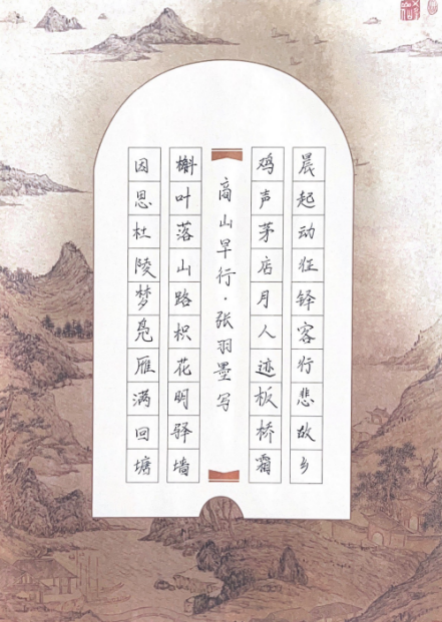 晨起动征铎客行悲故乡
鸡声茅店月人迹板桥霜
商山早行·张羽墨写
槲叶落山路枳花明驿墙
因思杜陵梦凫雁满回塘